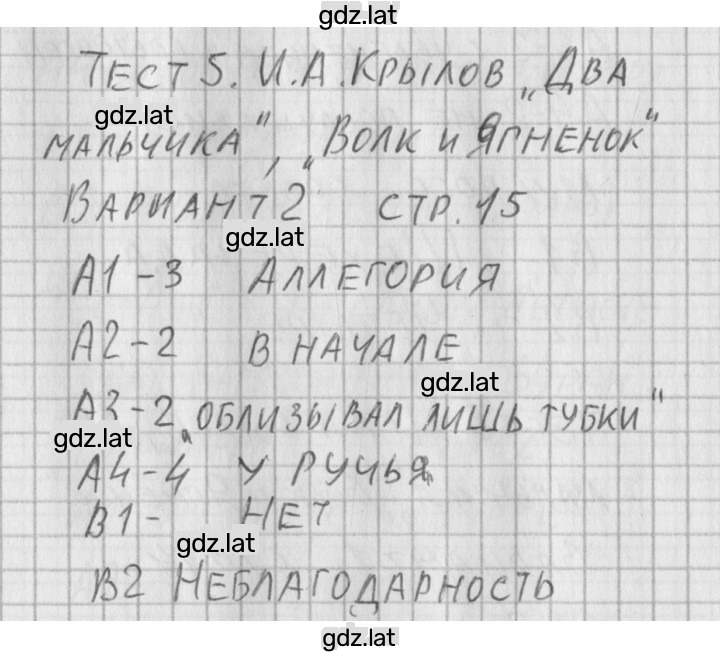 gdz.lat
ТЕСТ 5. И.А.КРЫЛОВ „ДВА
gdz.lat
МАЛЬЧИКА", „ВОЛК И ЯГНЕНОК"
ВАРИАНТ 2 СТР. 15
gdz.lat
А1-3 АЛЛЕГОРИЯ
А2-2 В НАЧАЛЕ
gdz.lat
А3-2 „ОБЛИЗЫВАЛ ЛИШЬ ГУБКИ"
gdz.lat
А4-4 У РУЧЬЯ
В1- НЕТ
gdz.lat
В2 НЕБЛАГОДАРНОСТЬ
gdz.lat